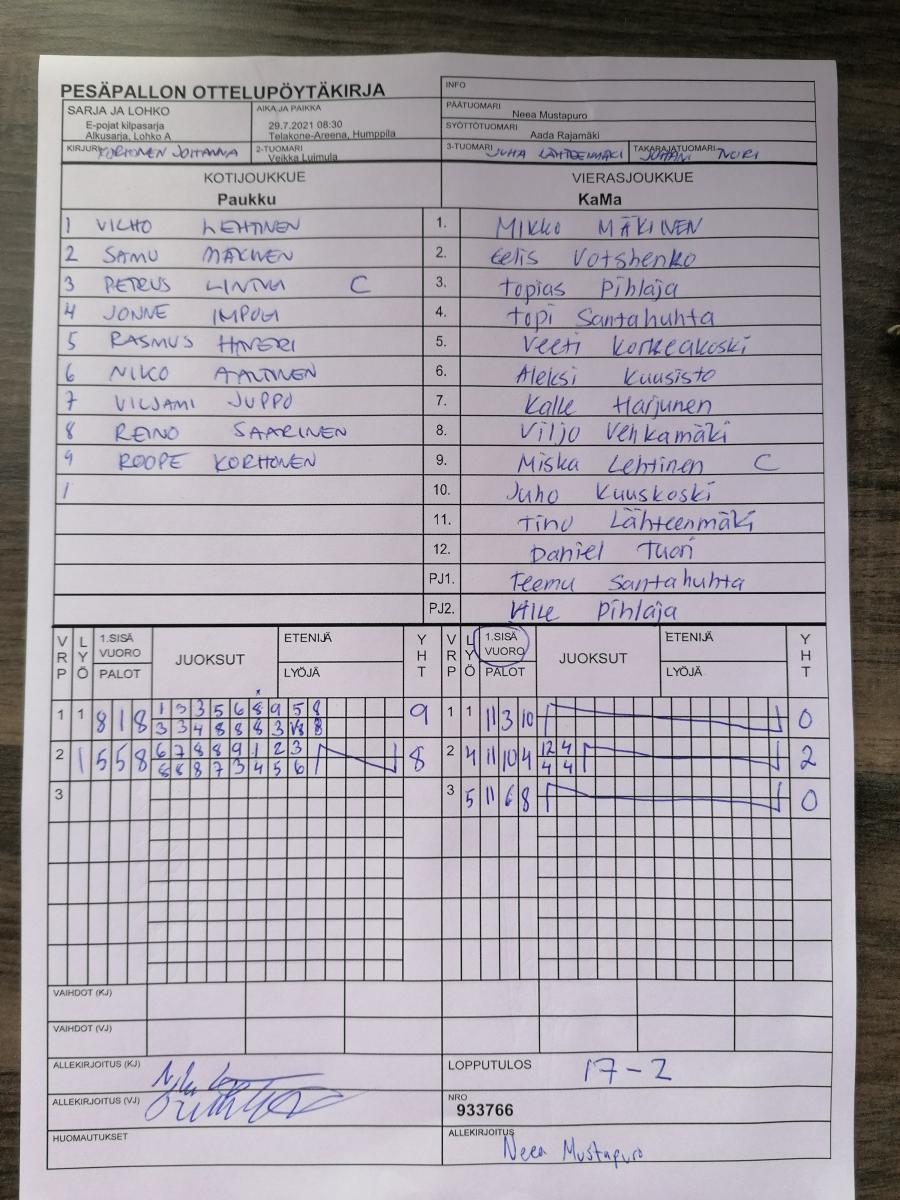 PESÄPALLON OTTELUPÖYTÄKIRJA
INFO
SARJA JA LOHKO
E-pojat kilpasarja
Alkusarja, Lohko A
AIKA JA PAIKKA
29.7.2021 08:30
Telakone-Areena, Humppila
PÄÄTUOMARI
Neea Mustapuro
SYÖTTÖTUOMARI
Aada Rajamäki
KIRJURI KORHONEN JOHANNA
2-TUOMARI
Veikka Luimula
3-TUOMARI JUHA LÄHTEENMÄKI
TAKARAJATUOMARI JUHANI
KOTIJOUKKUE
Paukku
VIERASJOUKKUE
KaMa
1 VILHO LEHTINEN 1. MIKKO MÄKINEN
2 SAMU MÄKINEN 2. Eelis Votshenko
3 PETRUS C 3. Topias Pihlaja
4 JONNE IMPOLA 4. Topi Santahuhta
5 RASMUS 5. Veeti Korkeakoski
6 NIKO AALTINEN 6. Aleksi Kuusisto
7 VILJAMI JUPPO 7. Kalle Harjunen
8 REINO SAARINEN 8. Viljo Vehkamäki
9 ROOPE KORHONEN 9. Miska Lehtinen C
1 10. Juho Kuuskoski
11. Tino Lähteenmäki
12. Daniel Tuori
PJ1. Teemu Santahuhta
PJ2. Ville Pihlaja
VRP LYÖ 1.SISÄ VUORO PALOT JUOKSUT ETENIJÄ LYÖJÄ YHT VRP LYÖ 1.SISÄ VUORO PALOT JUOKSUT ETENIJÄ LYÖJÄ YHT
1 1 8 1 8 1 5 3 5 6 8 9 5 8 9 1 1 11 3 10 0
3 3 4 8 8 8 3 8
2 1 5 5 8 6 7 8 8 9 1 2 3 8 2 4 11 10 4 12 4 2
8 8 8 7 3 4 5 6 4 4
3 3 5 11 6 8 0
VAIHDOT (KJ)
VAIHDOT (VJ)
ALLEKIRJOITUS (KJ)
LOPPUTULOS 17-2
ALLEKIRJOITUS (VJ)
NRO
933766
HUOMAUTUKSET
ALLEKIRJOITUS
Neea Mustapuro